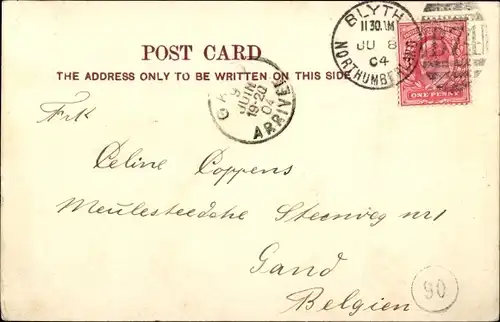 POST CARD
THE ADDRESS ONLY TO BE WRITTEN ON THIS SIDE
BLYTH
11 30 AM
JU 8
04
NORTHUMBERLAND
ONE PENNY
9
JUIN
19-20
04
ARRIVEE
Frk
Celine Coppens
Meulesteedsche Steenweg nr 1
Gand
Belgien
90